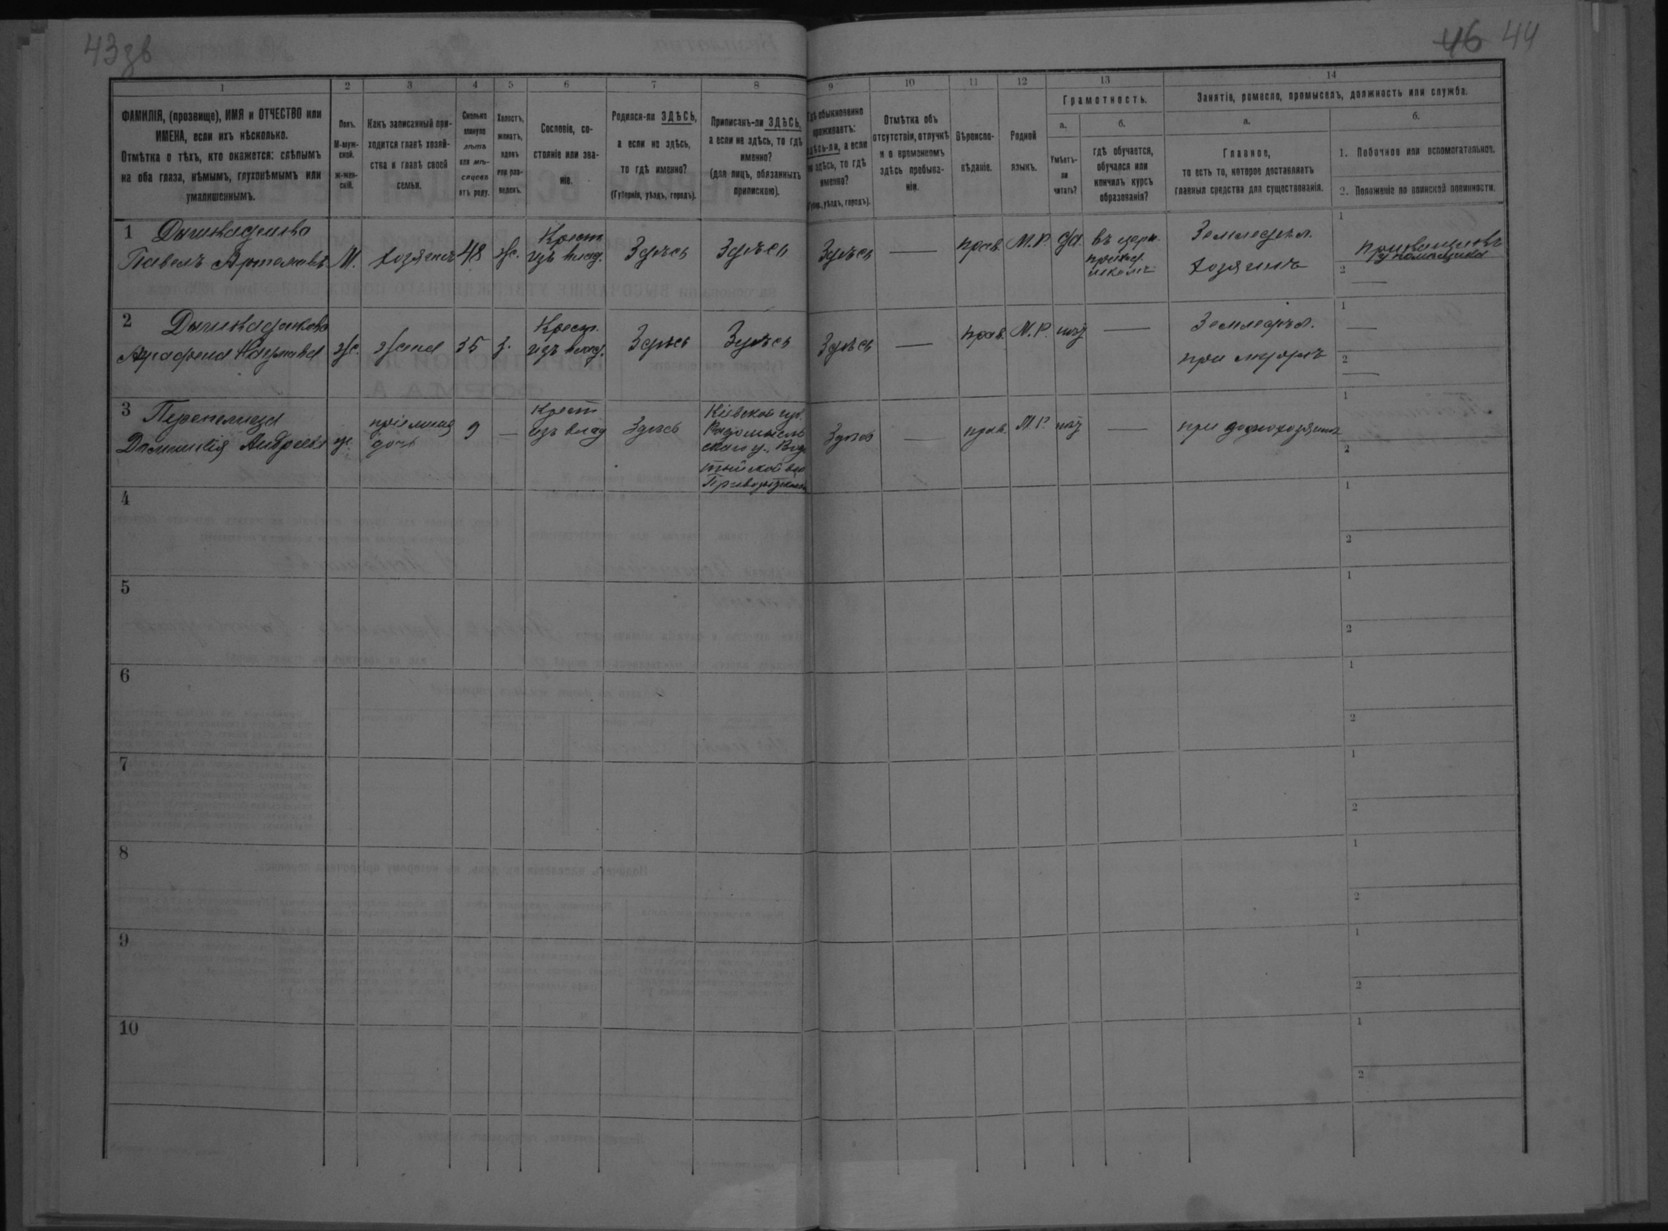 43зв
46 44
1
2
3
4
5
6
7
8
9
10
11
12
13
14
ФАМИЛІЯ, (прозвище), ИМЯ и ОТЧЕСТВО или
ИМЕНА, если ихъ нѣсколько.
Отмѣтка о тѣхъ, кто окажется: слѣпымъ
на оба глаза, нѣмымъ, глухонѣмымъ или
умалишеннымъ.
Полъ.
М-муж-
ской.
Ж-жен-
скій.
Какъ записанный при-
ходится главѣ хозяй-
ства и главѣ своей
семьи.
Сколько
минуло
лѣтъ
или мѣ-
сяцевъ
отъ роду.
Холостъ,
женатъ,
вдовъ
или раз-
веденъ.
Сословіе, со-
стояніе или зва-
ніе.
Родился-ли ЗДѢСЬ,
а если не здѣсь,
то гдѣ именно?
(Губернія, уѣздъ, городъ).
Приписанъ-ли ЗДѢСЬ,
а если не здѣсь, то гдѣ
именно?
(для лицъ, обязанныхъ
припискою).
Гдѣ обыкновенно
проживаетъ:
здѣсь-ли, а если
не здѣсь, то гдѣ
именно?
(Губер., уѣздъ, городъ).
Отмѣтка объ
отсутствіи, отлучкѣ
и о временномъ
здѣсь пребыва-
ніи.
Вѣроиспо-
вѣданіе.
Родной
языкъ.
Грамотность.
а.
Умѣетъ-
ли
читать?
б.
гдѣ обучается,
обучался или
кончилъ курсъ
образованія?
Занятіе, ремесло, промыселъ, должность или служба.
а.
Главное,
то есть то, которое доставляетъ
главныя средства для существованія.
б.
1. Побочное или вспомогательное.
2. Положеніе по воинской повинности.
1
Павелъ
М.
хозяинъ
48
ж.
Крест.
изъ влад.
Здѣсь
Здѣсь
Здѣсь
—
прав.
М.Р.
да
въ церк.
приход.
школѣ
Земледѣл.
хозяинъ
1
2 —
2
ж.
жена
35
з.
Крест.
изъ влад.
Здѣсь
Здѣсь
Здѣсь
—
прав.
М.Р.
нѣт
—
Земледѣл.
при мужѣ
1 —
2 —
3
Перепелица
ж.
пріемная
дочь
9
—
Крест
изъ влад
Здѣсь
Кіевской губ.
Радомысль
скаго у.
Здѣсь
—
прав.
М.Р.
нѣт
—
при домохозяинѣ
1
2
4
1
2
5
1
2
6
1
2
7
1
2
8
1
2
9
1
2
10
1
2